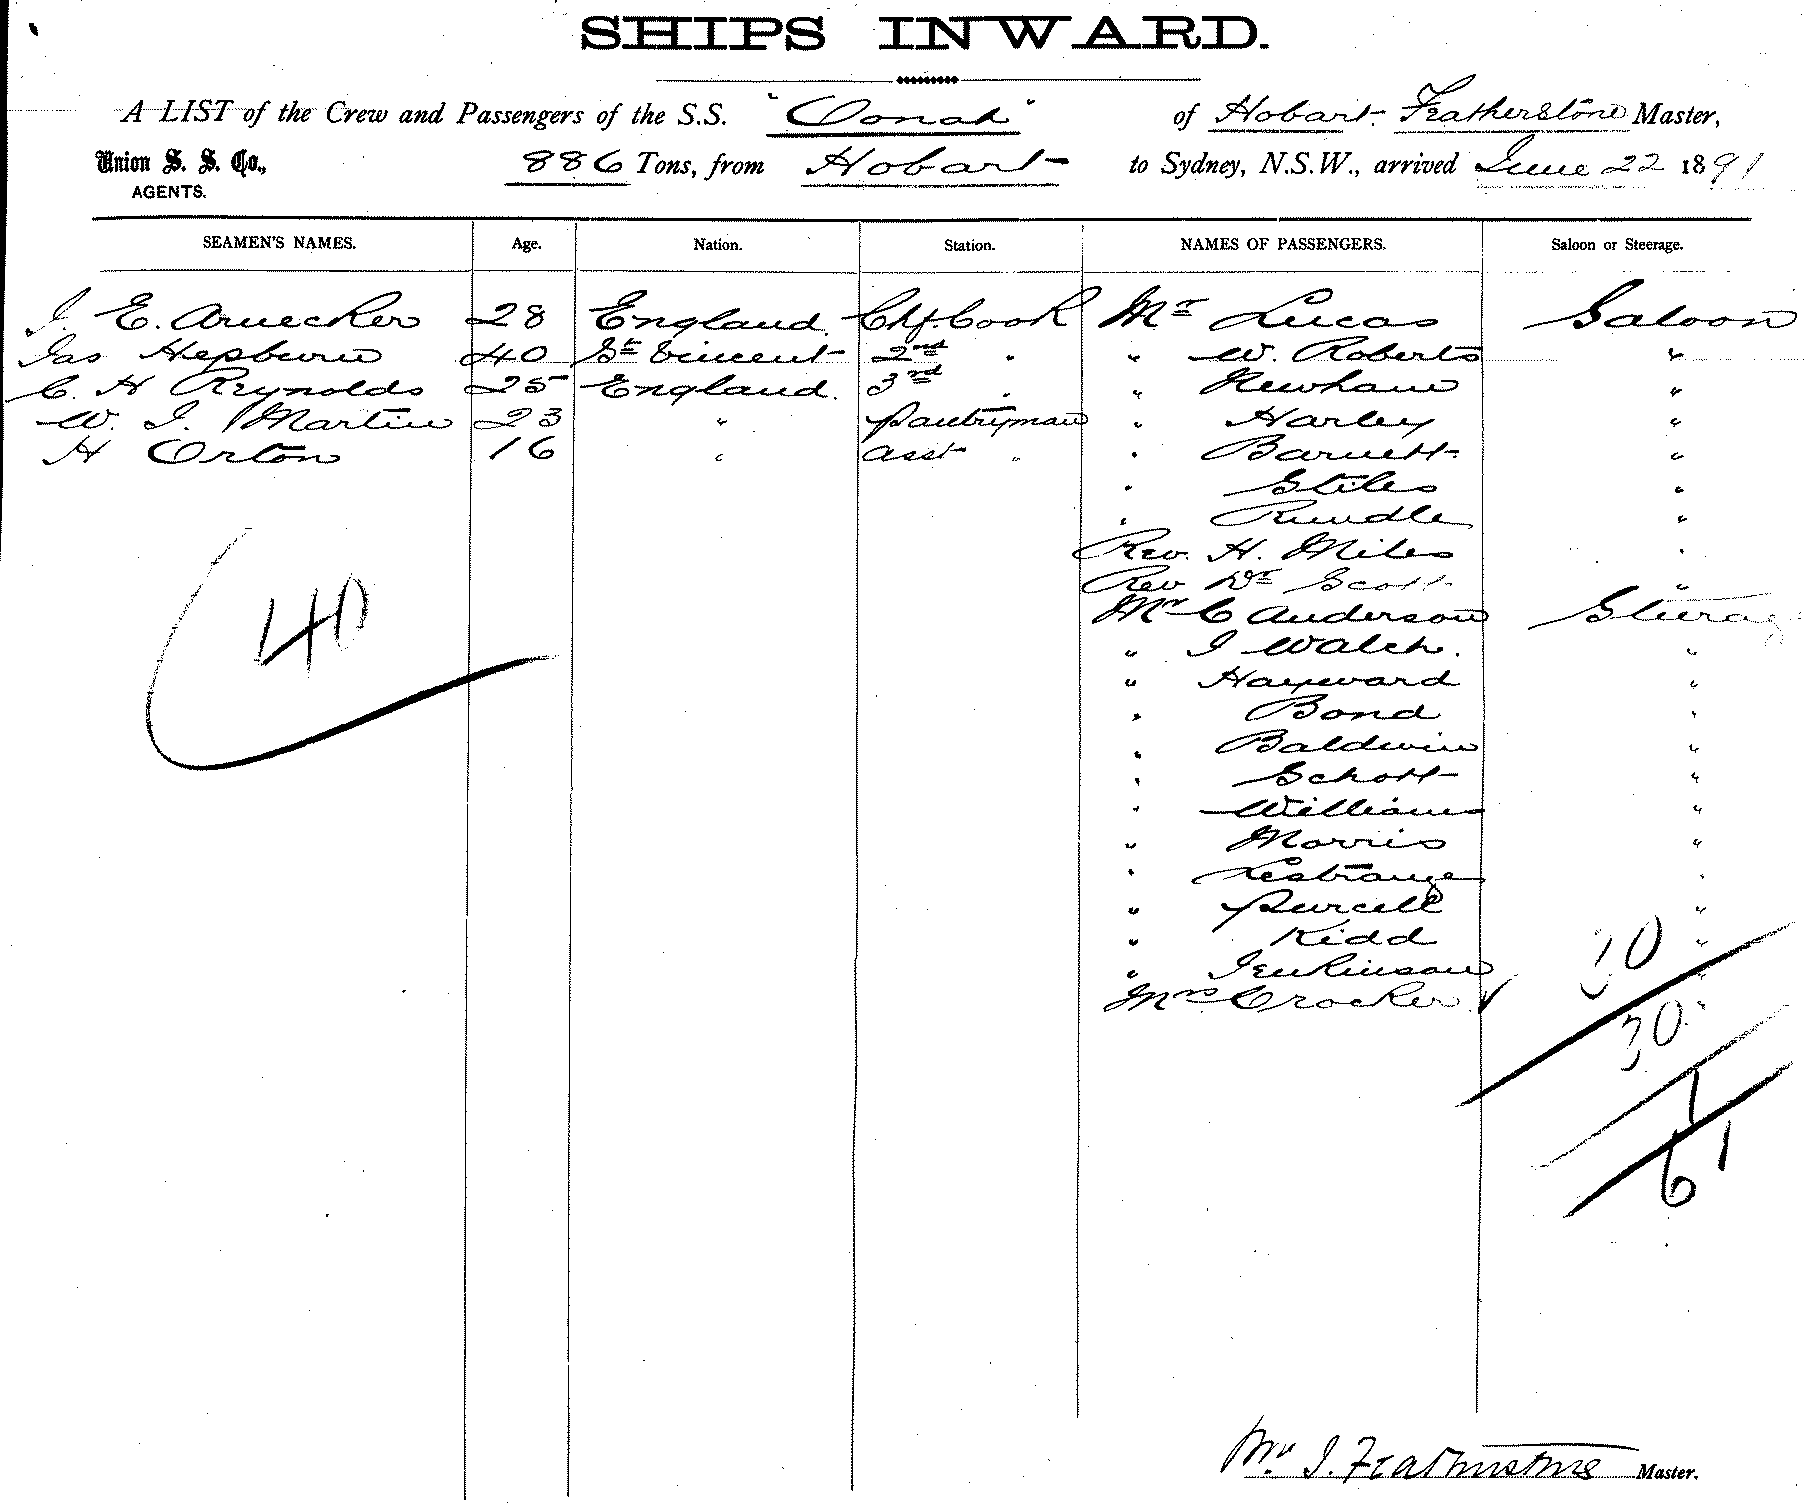 SHIPS INWARD.
A LIST of the Crew and Passengers of the S.S. "Oonah" of Hobart. Featherstone Master,
Union S. S. Co., 886 Tons, from Hobart to Sydney, N.S.W., arrived June 22 1891
AGENTS.
SEAMEN'S NAMES. Age. Nation. Station. NAMES OF PASSENGERS. Saloon or Steerage.
J. E. 28 England Chf. Cook Mr Lucas Saloon
Jas Hepburn 40 St Vincent 2nd " " W. Roberts "
C. H Reynolds 25 England. 3rd " " Newham "
W. J. Martin 23 " Pantryman " Harley "
H Orton 16 " Asst " " Barnett "
" Stiles "
" Rundle "
Rev. H. Miles "
Rev Dr Scott "
Mr C Anderson Steerage
" J Walch. "
" Hayward "
" Bond "
" Baldwin "
" Schott "
" Williams "
" Morris "
" Lestrange "
" Purcell "
" Kidd "
" Jenkinson "
Mrs Crocker "
40
61
Wm. J. Featherstone Master.